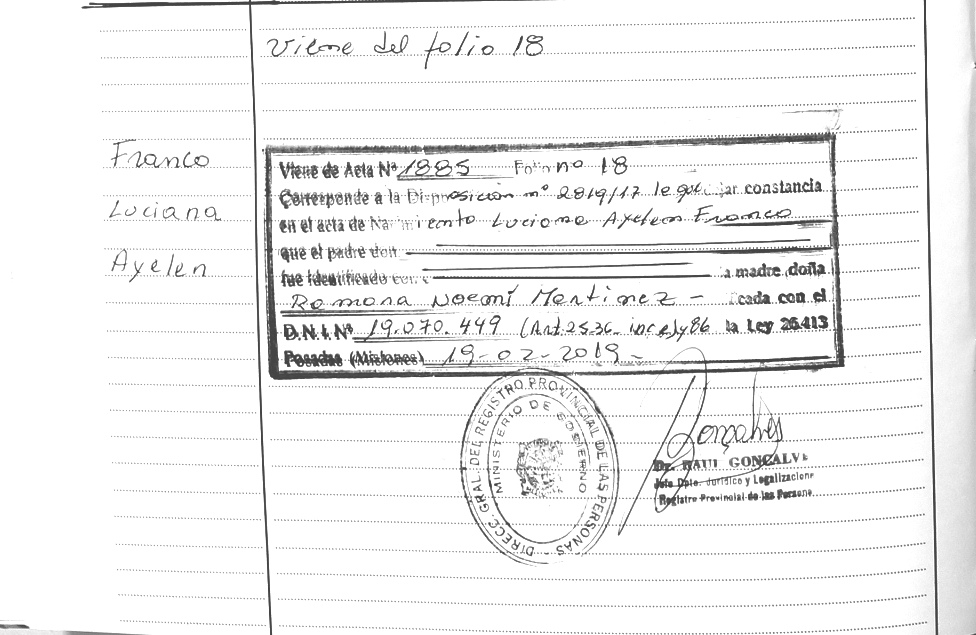 Viene del folio 18
Franco
Luciana
Ayelen
Viene de Acta Nº 1885 Folio nº 18
Corresponde a la Disposición nº 2819/17 constancia
en el acta de Nacimiento Luciana Ayelen Franco
que el padre don
fue identificado con a madre doña
Ramona Noemí Martinez - icada con el
D.N.I. Nº 19.070.449 (Art 25.36. y 86 la Ley 26.413
Posadas (Misiones) 19-02-2019-
DIRECC. GRAL. DEL REGISTRO PROVINCIAL DE LAS PERSONAS
MINISTERIO DE GOBIERNO
Gonçalves
Dr. RAUL GONCALVE
Jefe Dpto. Jurídico y Legalizacione
Registro Provincial de las Persona